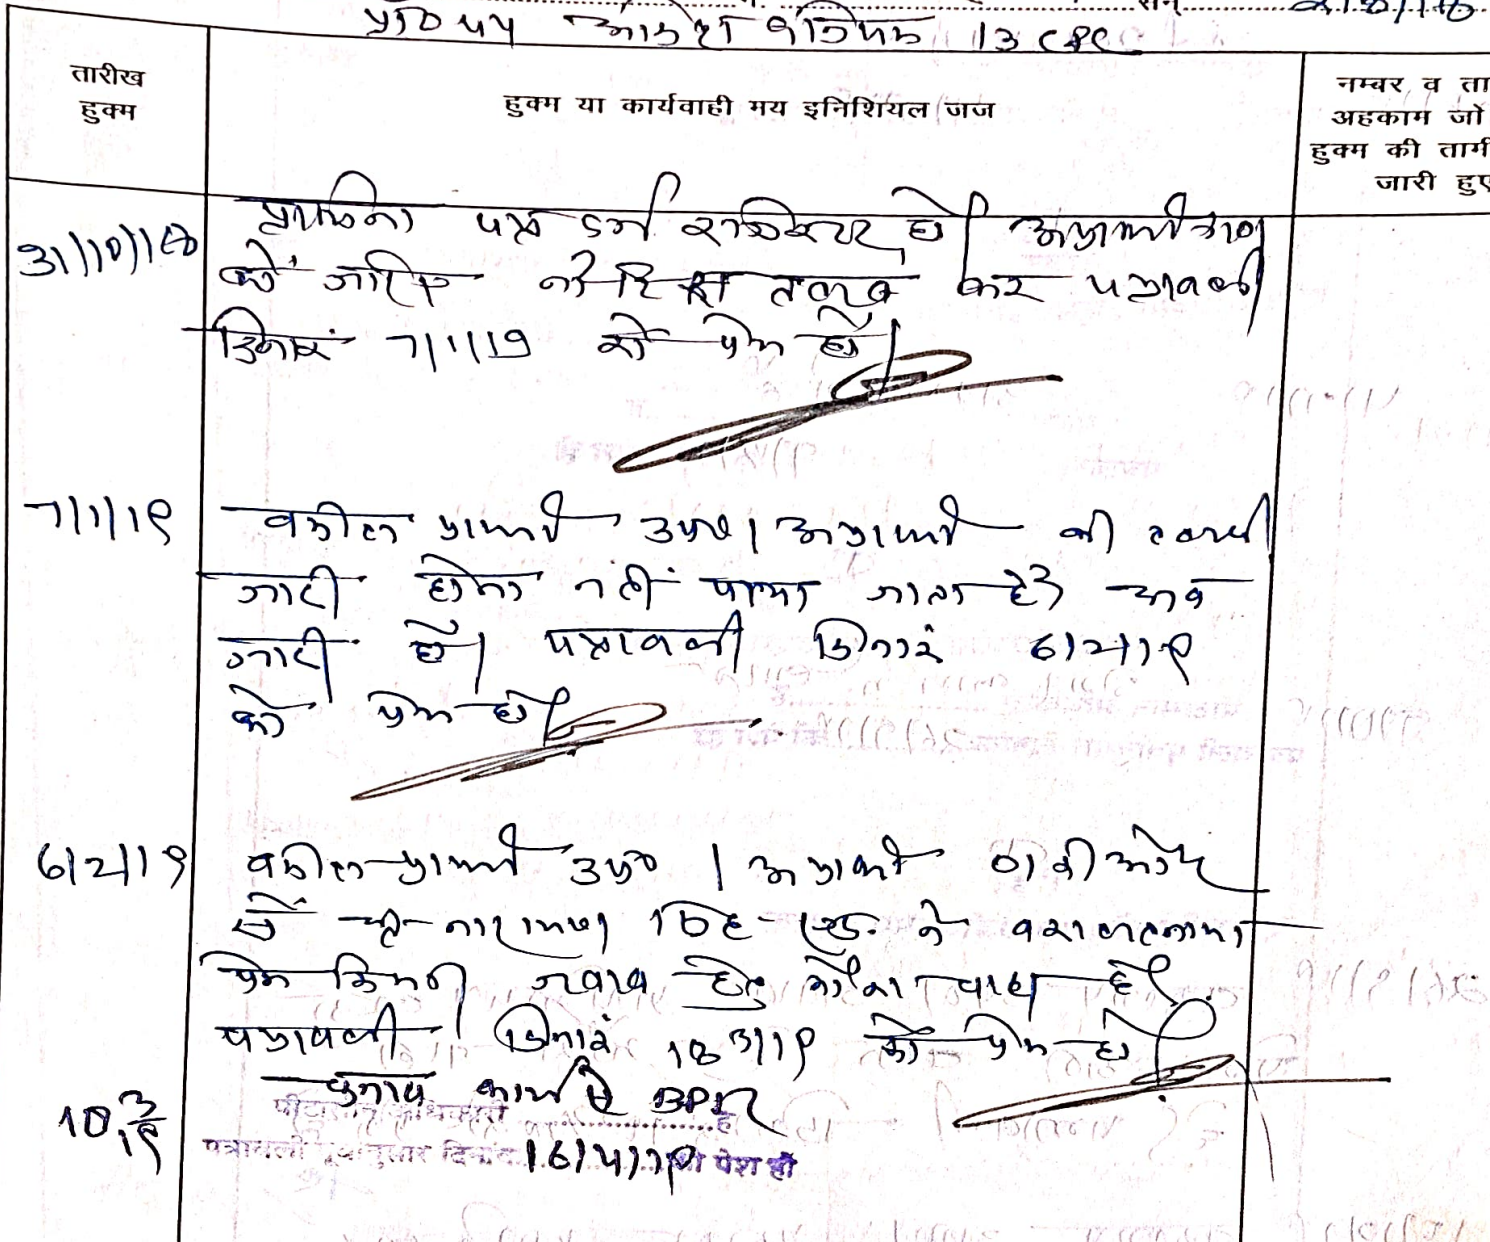 आदेश 9 नियम 13 CPC
तारीख
हुक्म
हुक्म या कार्यवाही मय इनिशियल जज
नम्बर व ता
अहकाम जो
हुक्म की तामी
जारी हुए
31/10/18
प्रार्थना पत्र दर्ज रजिस्टर हो। अप्रार्थीगण
को जरिए नोटिस तलब कर पत्रावली
दिनांक 7/1/19 को पेश हो।
7/1/19
वकील प्रार्थी उप०। अप्रार्थी की तलबी
जारी होना नहीं पाया जाता है। अब
जारी हो। पत्रावली दिनांक 6/2/19
को पेश हो।
6/2/19
वकील प्रार्थी उप०। अप्रार्थी की ओर
से नारायण सिंह एड. ने वकालतनामा
पेश किया। जवाब हेतु मौका चाहा है।
पत्रावली दिनांक 18/3/19 को पेश हो।
18/3/19
चुनाव कार्य में
पीठासीन अधिकारी है
पत्रावली पूर्वानुसार दिनांक 16/4/19 को पेश हो